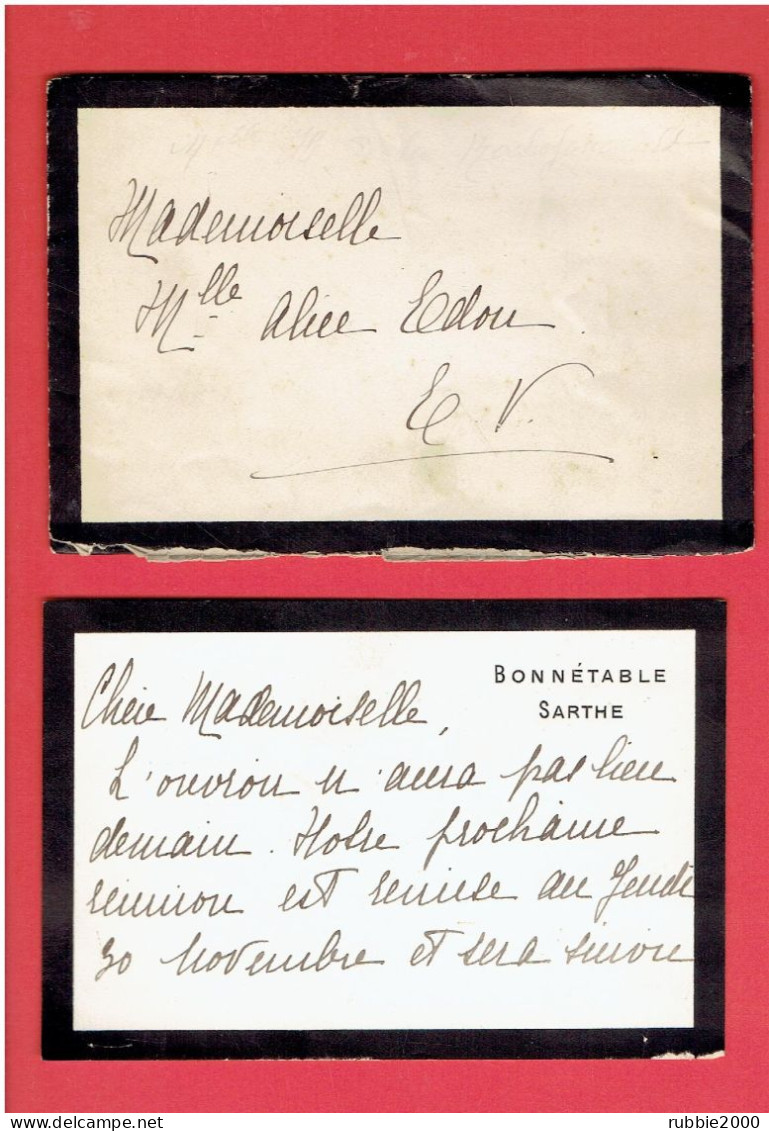 Mademoiselle
Mlle Alice Edou
E V.
BONNÉTABLE
SARTHE
Chère Mademoiselle,
L'ouvroir n'aura pas lieu
demain. Notre prochaine
réunion est remise au Jeudi
30 Novembre et sera suivie
rubbie2000